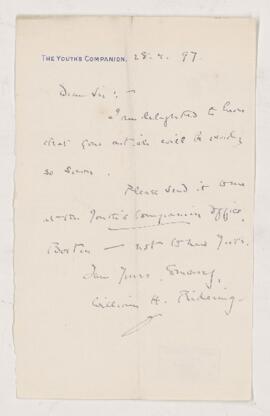 THE YOUTH'S COMPANION, 28. 7. 97.
Dear Sir: —
I am delighted to hear
that your article will be ready
so soon.
Please send it to me
at the Youth's Companion Office,
Boston — not to New York.
I am Yours Sincerely,
William H. Rideing.